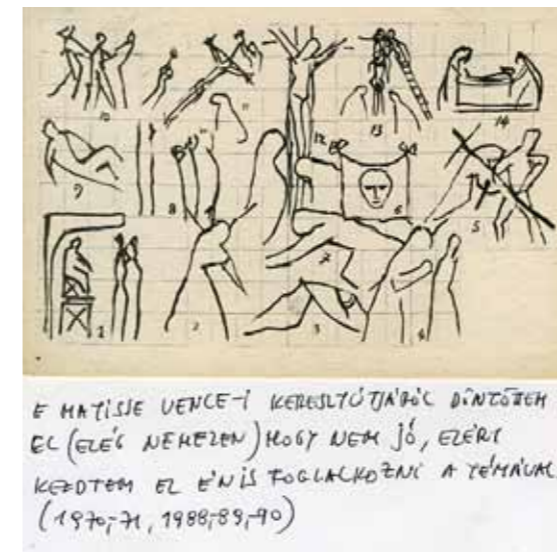 10 11 13 14
9 8 12 6 5
7
1 2 3 4
E MATISSE VENCE-I KERESZTÚTJÁRÓL DÖNTÖTTEM
EL (ELÉG NEHEZEN) HOGY NEM JÓ, EZÉRT
KEZDTEM EL ÉN IS FOGLALKOZNI A TÉMÁVAL
(1970,-71, 1988,-89,-90)